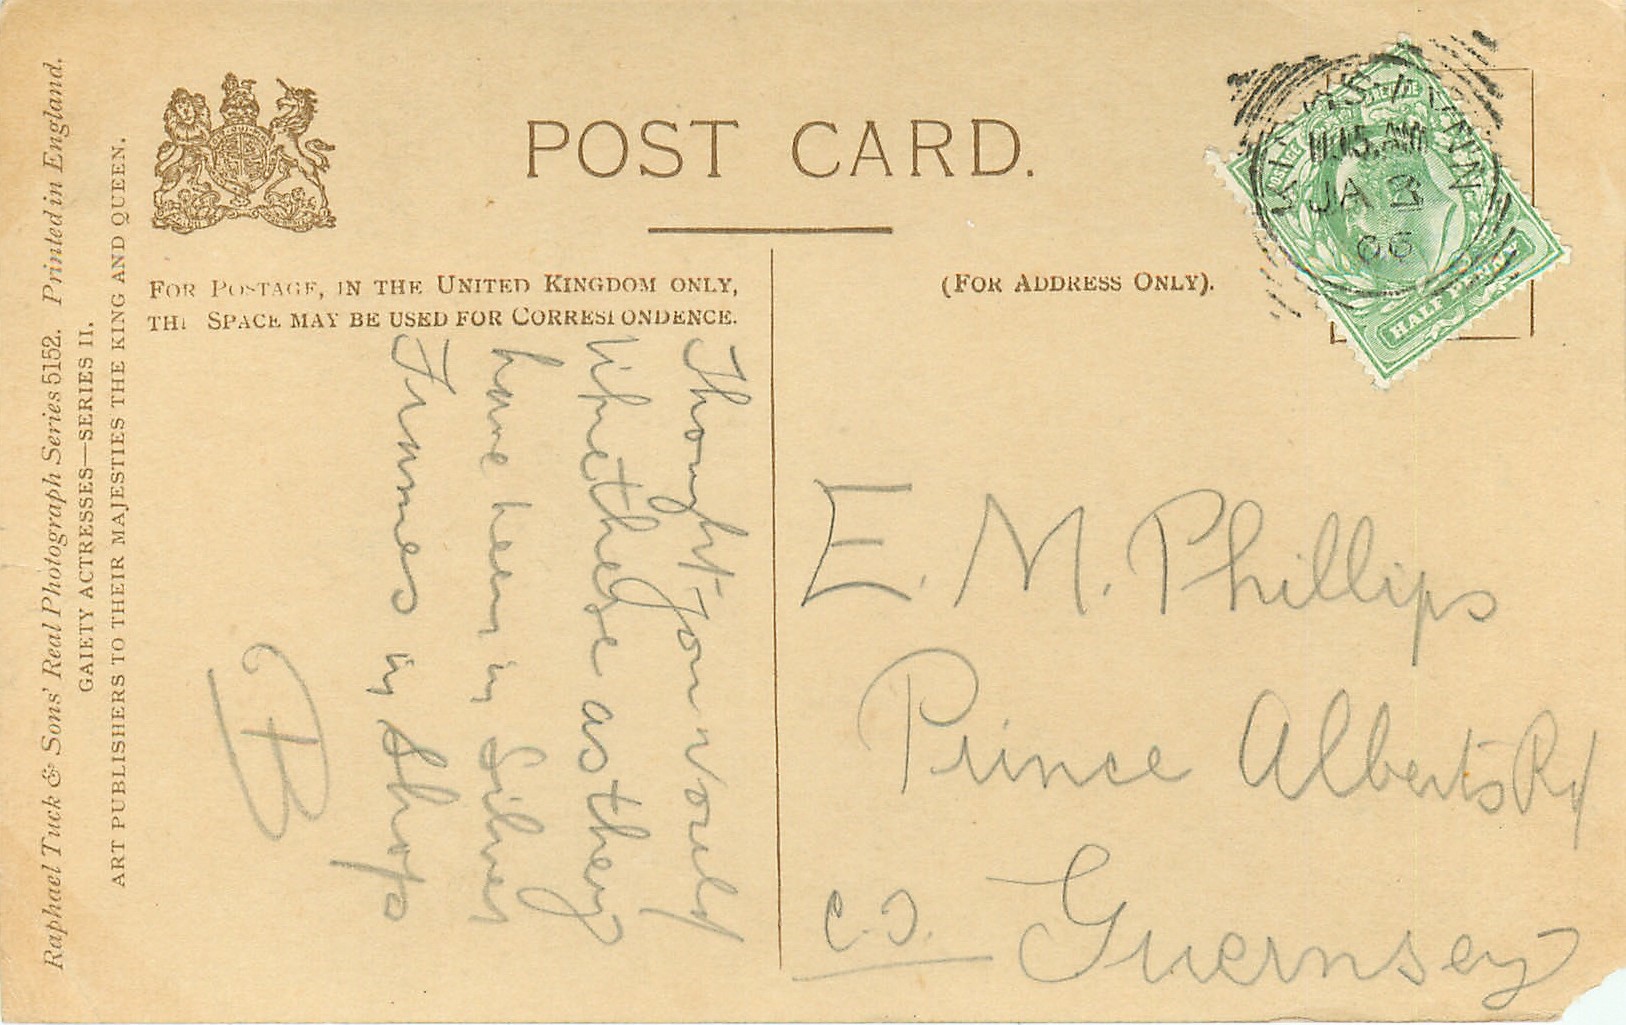 Raphael Tuck & Sons' Real Photograph Series 5152. Printed in England.
GAIETY ACTRESSES—SERIES II.
ART PUBLISHERS TO THEIR MAJESTIES THE KING AND QUEEN.
POST CARD.
FOR POSTAGE, IN THE UNITED KINGDOM ONLY,
THI SPACE MAY BE USED FOR CORRESPONDENCE.
(FOR ADDRESS ONLY).
Thought you would
like these as they
have been in Silver
Frames in Shops
TB
E. M. Phillips
Prince Alberts Rd
C.I. Guernsey
11.15 AM
JA 3
06
HALF PENNY